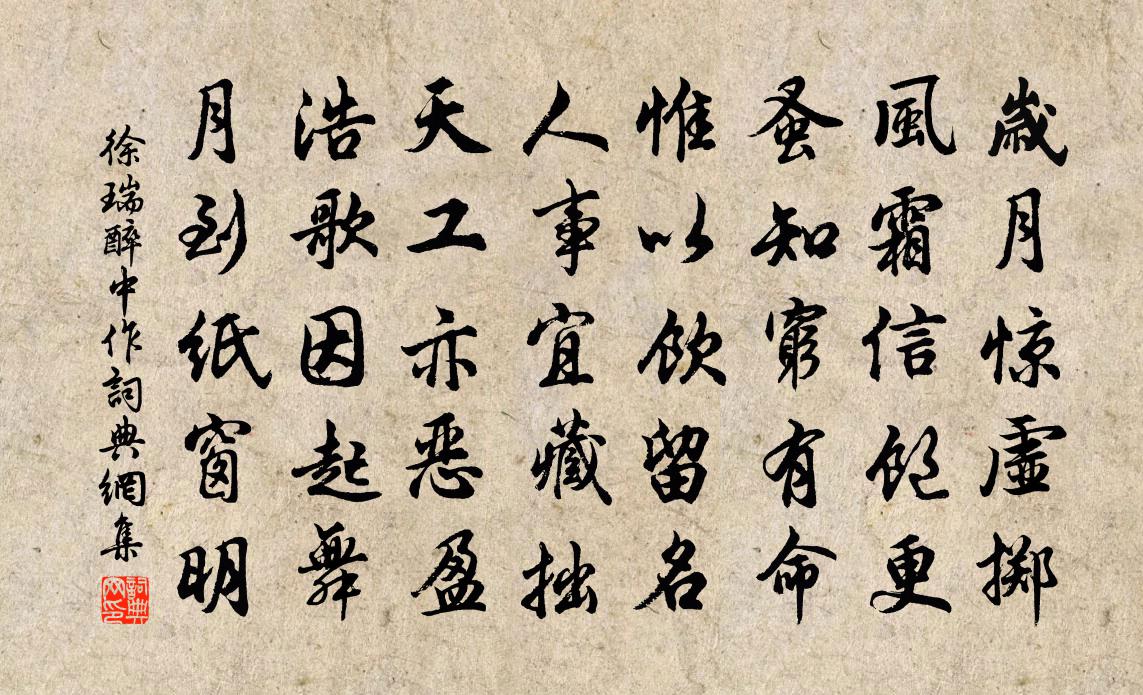 歲月惊虛擲
風霜信飽更
蚤知窮有命
惟以飲留名
人事宜藏拙
天工亦惡盈
浩歌因起舞
月到紙窗明
徐瑞醉中作詞典網集
詞典網印